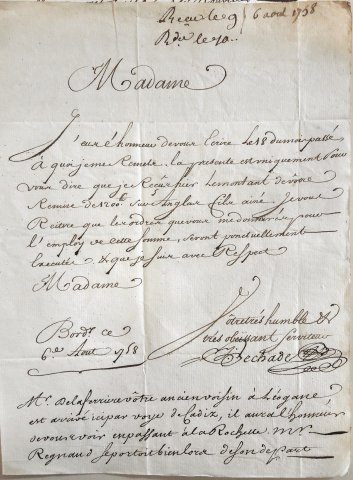 Recu le 9 6 aout 1758
Rdu le 10..
Madame
J'eus l'honneur de vous Ecrire Le 18 du mois passé
A quoi je me Remets. la presente est uniquement Pour
vous dire que je Recûs hier Le montant de vôtre
Remise de 1200lt. Sur Anglar fils ainé. Je vous
Reitere que les ordres que vous me donnerez pour
l'employ de cette somme, seront ponctuellement
Executés & que je suis avec Respect
Madame
Bordx ce
6e. Aout 1758
Vôtre trés humble &
trés obeissant serviteur
Bechade
Mr. Delaferriere vôtre ancien voisin à Leogane
est arrivé ici par voye de Cadix, il aura l'honneur
de vous voir en passant à la Rochelle. mr.
Regnaud se portoit bien lors de son depart